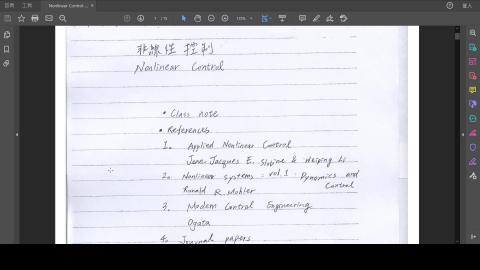 首頁 工具 Nonlinear Control ... × 登入
1 / 76 125%
非線性 控制
Nonlinear Control
• Class note
• References
1. Applied Nonlinear Control
Jean-Jacques E. Slotine & Weiping Li
2. Nonlinear Systems : vol. 1 : Dynamics and
Control
Ronald R. Mohler
3. Modern Control Engineering
Ogata
4. Journal papers